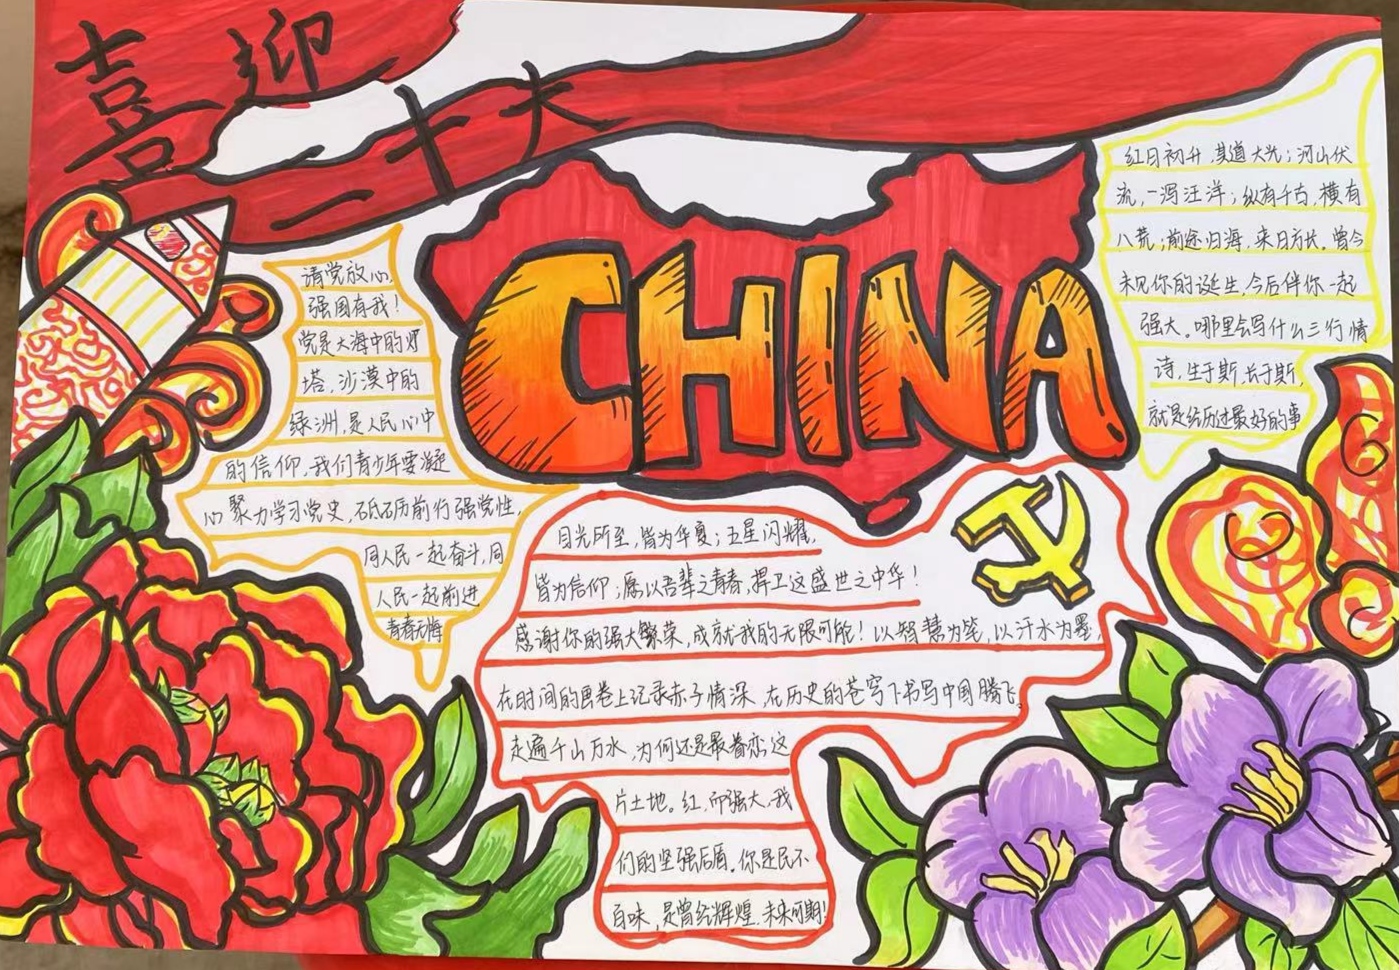 喜迎
二十大
CHINA
请党放心
强国有我！
党是大海中的灯
塔，沙漠中的
绿洲，是人民心中
的信仰，我们青少年要凝
心聚力学习党史，砥砺前行强党性，
同人民一起奋斗，同
人民一起前进
青春无悔
目光所至，皆为华夏；五星闪耀，
皆为信仰；愿以吾辈之青春，捍卫这盛世之中华！
感谢你的强大繁荣，成就我的无限可能！以智慧为笔，以汗水为墨，
在时间的画卷上记录赤子情深，在历史的苍穹下书写中国腾飞。
走遍千山万水，为何还是最眷恋这
片土地。红，而强大，我
们的坚强后盾。你是民不
百味，是曾经辉煌，未来可期！
红日初升，其道大光；河山伏
流，一泻汪洋；纵有千古，横有
八荒；前途归海，来日方长。曾今
未见你的诞生，今后伴你一起
强大。哪里会写什么三行情
诗，生于斯，长于斯，
就是经历过最好的事